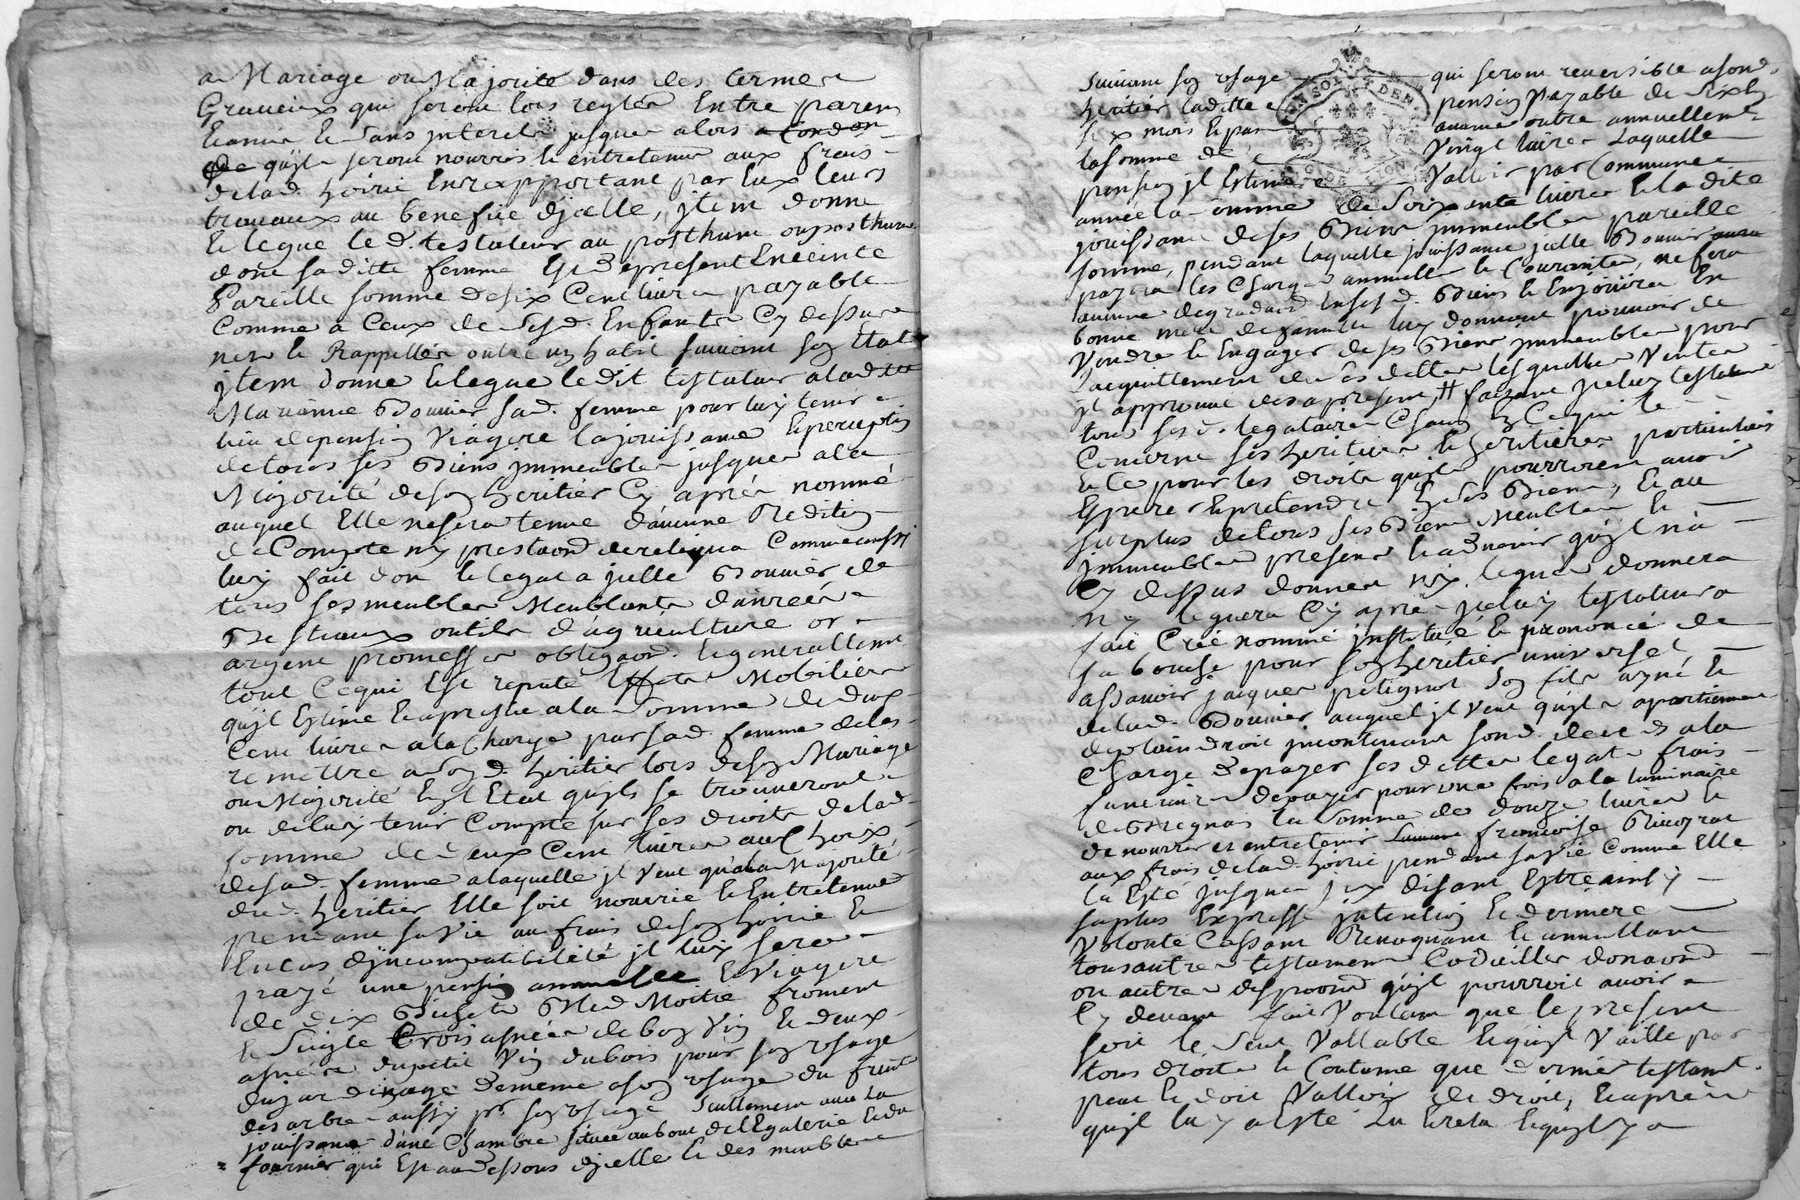 a Mariage ou Majorité dans des termes
Gracieux qui seront lors reglés Entre parens
Et sans jnterets jusques alors a Condon
de quils seront nourris et entretenus aux frais
de lad. hoirie En rapportant par Eux leurs
travaux au benefice djcelle, jtem donne
Et legue le d. testateur au posthume ou posthume
dont saditte femme Est a present Enceinte
Pareille somme de six Cent livres payable
Comme a Ceux de sesd. Enfants Cy dessus
nés et Rappellés outre un habit suivant son Etat
jtem donne et legue ledit testateur a laditte
Marianne Bouvier sad. femme pour luy tenir
lieu de pension Viagere la jouissance Et perception
de tous ses Biens jmmeubles jusques a la
Majorité de son heritier Cy après nommé
auquel Elle ne sera tenue d'aucune Reddition
de Compte ny prestaon de reliqua Comme aussi
luy fait don et legat a jcelle Bouvier de
tous ses meubles Meublants danrées
Bestiaux outils d'agriculture or
argent promesses obligaons. et generallement
tout Ce qui Est reputé Effets Mobiliers
qu'jl Estime Et apretie a la somme de deux
Cent livres a la Charge par sad. femme de les
remettre a son d. heritier lors de son Mariage
ou Majorité En l'Etat qu'jls se trouveront
ou de luy tenir Compte sur ses droits de lad.
somme de deux Cent livres au Choix
de sad. femme a laquelle jl Veut qu'a la Majorité
dud. heritier Elle soit nourrie et Entretenue
pendant sa Vie au frais de son hoirie Et
En cas djncompatibilité jl luy sera
payé une pension annuelle Et Viagere
de dix Bichets Bled Moitié froment
et Seigle trois asnées de bon Vin et deux
asnées du petit Vin du bois pour son usage
du jardinage de meme a son usage du fruit
des arbres aussy pr. son usage Seullement avec la
jouissance d'une Chambre située au bout de l'Egalerie et du
fournier qui Est au dessous djcelle et des meubles
suivant son usage qui seront reversible a sond.
heritier laditte pension payable de six En
six mois et par avance outre annuellement
la somme de Vingt livres Laquelle
pension jl Estime Valloir par Commune
année la somme de Soixante livres Et la dite
jouissance de ses Biens jmmeubles pareille
somme, pendant laquelle jouissance jcelle Bouvier
payera les Charges annuelles et Courantes, ne fera
aucune degradaon En sesd. Biens et En jouira En
bonne mere de famille luy donnant pouvoir de
Vendre et Engager de ses Biens jmmeubles pour
l'acquittement de ses dettes lesquelles Ventes
jl approuve des a present # faisant jceluy testateur
tous ses d. legataires Chacun En Ce qui le
Concerne ses heritiers Et heritieres particuliers
et Ce pour les droits qu'jls pourroient avoir
Esperer Et pretendre En ses Biens, Et au
surplus de tous ses Biens Meubles et
jmmeubles presents et a Venir qu'jl n'a
Cy dessus donnés ny legués donnera
ny leguera Cy après jceluy testateur a
fait Créé nommé jnstitué et prononcé de
sa bouche pour son heritier universel
assavoir jacques petignot son fils ayné et
de lad. Bouvier auquel jl Veut qu'jls apartiennent
de plain droit jncontinant sond. decés a la
Charge de payer ses dettes legats frais
funeraires de payer pour une fois a la luminaire
de Bregnas la somme de douze livres et
de nourrir et entretenir françoise
aux frais de lad. hoirie pendant sa Vie Comme Elle
la Eté jusques jcy disant Estre ainsy
sa plus Expresse jntention Et derniere
Volonté Cassant Revoquant et annullant
tous autres testaments Codicilles donaons
ou autres disposons qu'jl pourroit avoir
Cy devant fait Voulant que le present
soit le Seul Vallable Et qu'jl Vaille par
tous droits et Coutume que dernier testament
peut Et doit Valloir de droit, Et après
qu'jl luy a Esté Lu Et relu Et qu'jl y a